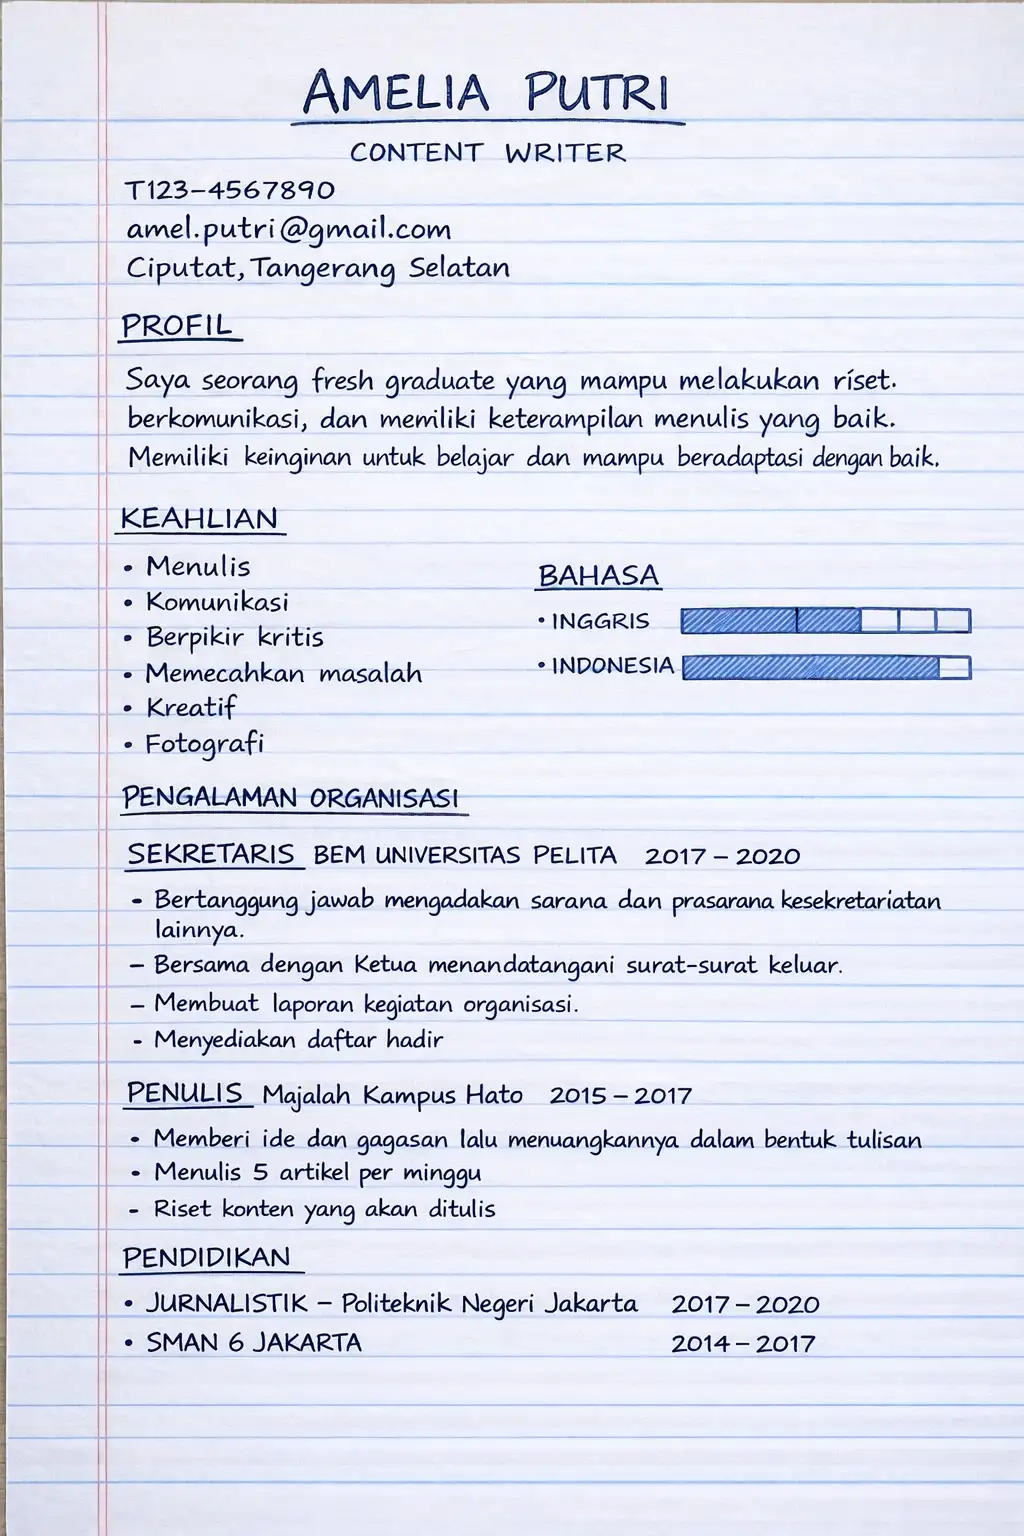 AMELIA PUTRI
CONTENT WRITER
T123-4567890
amel.putri@gmail.com
Ciputat, Tangerang Selatan
PROFIL
Saya seorang fresh graduate yang mampu melakukan riset.
berkomunikasi, dan memiliki keterampilan menulis yang baik.
Memiliki keinginan untuk belajar dan mampu beradaptasi dengan baik.
KEAHLIAN
• Menulis
• Komunikasi
• Berpikir kritis
• Memecahkan masalah
• Kreatif
• Fotografi
BAHASA
• INGGRIS
• INDONESIA
PENGALAMAN ORGANISASI
SEKRETARIS BEM UNIVERSITAS PELITA 2017 – 2020
- Bertanggung jawab mengadakan sarana dan prasarana kesekretariatan
lainnya.
– Bersama dengan Ketua menandatangani surat-surat keluar.
– Membuat laporan kegiatan organisasi.
- Menyediakan daftar hadir
PENULIS Majalah Kampus Hato 2015 – 2017
• Memberi ide dan gagasan lalu menuangkannya dalam bentuk tulisan
• Menulis 5 artikel per minggu
- Riset konten yang akan ditulis
PENDIDIKAN
• JURNALISTIK – Politeknik Negeri Jakarta 2017 – 2020
• SMAN 6 JAKARTA 2014 – 2017